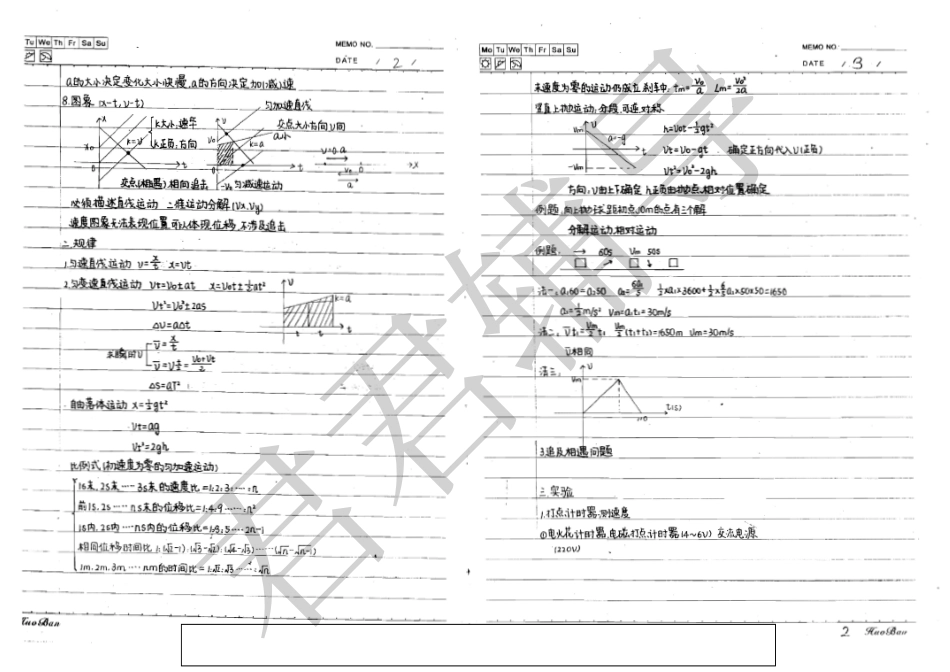 Tu We Th Fr Sa Su
MEMO NO.
DATE / 2 /
a的大小决定变化大小快慢,a的方向决定加(减)速
8.图象 (x-t, v-t)
匀加速直线
k大小:速率
k正负:方向
交点大小方向V同
k=a
交点(相遇)相向追击
匀减速运动
只能描述直线运动 二维运动分解(Vx,Vy)
速度图象无法表现位置,可以体现位移,不涉及追击
二.规律
1.匀速直线运动 v=x/t x=vt
2.匀变速直线运动 Vt=Vo±at x=Vot±½at²
Vt²=Vo²±2as
k=a
ΔU=aΔt
求瞬时V
V̄=x/t
V̄=V t/2=(Vo+Vt)/2
ΔS=aT²
自由落体运动 x=½gt²
Vt=ag
Vt²=2gh
比例式(初速度为零的匀加速运动)
1s末,2s末…3s末的速度比=1:2:3:…:n
前1s,2s……ns末的位移比=1:4:9……:n²
1s内,2s内……ns内的位移比=1:3:5……2n-1
相同位移时间比 1:(√2-1):(√3-√2):(√4-√3)……(√n-√n-1)
1m.2m.3m……nm的时间比=1:√2:√3……:√n
HuoBan
Mo Tu We Th Fr Sa Su
MEMO NO.
DATE / 3 /
末速度为零的运动仍成立,刹车中,tm=Vo/a Lm=Vo²/2a
竖直上抛运动:分段,可逆,对称.
a=-g
h=Vot-½gt²
Vt=Vo-gt 确定正方向代入V(正负)
Vt²=Vo²-2gh
方向:V由上下确定 h正负由抛点,相对位置确定
例题:向上抛球 距初点10m的点有三个解
分解运动,相对运动
例题: → 60s Vm 50s
法一:a₁60=a₂50 a₂=6a₁/5 ½×a₁×3600+½×6/5a₁×50×50=1650
a₁=½m/s² Vm=a₁t₁=30m/s
法二:V̄t₁=Vm/2 t₁ Vm/2(t₁+t₂)=1650m Vm=30m/s
V̄相同
法三:
Vm
V
110
t(s)
3.追及相遇问题
三.实验
1.打点计时器,测速度
①电火花计时器,电磁打点计时器(4~6V) 交流电源
(220V)
2 HuoBan
君君辅导